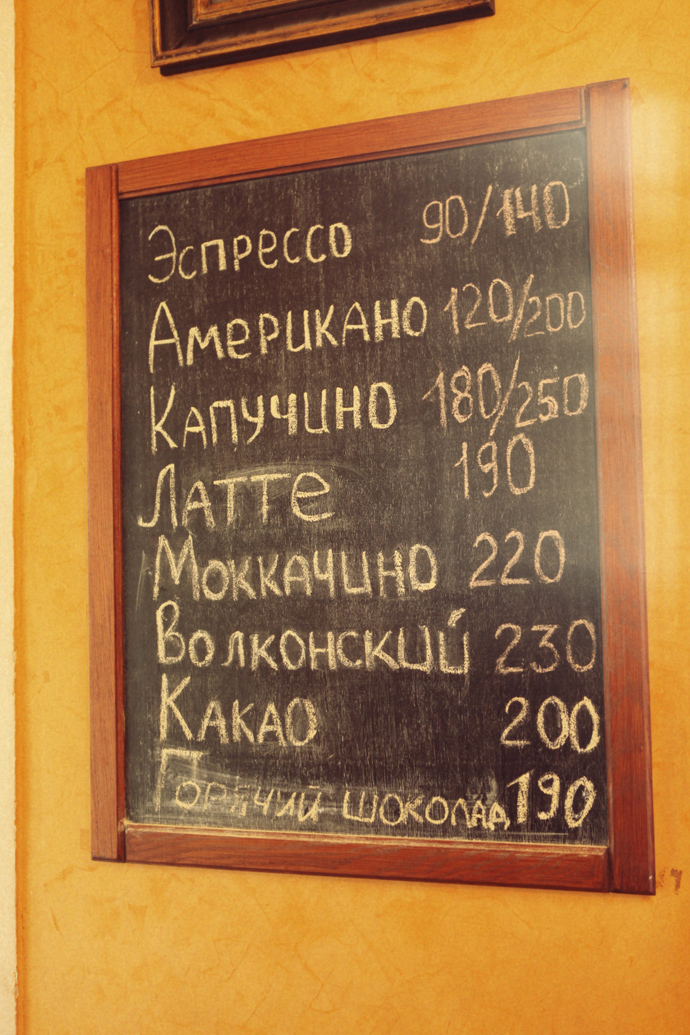 Эспрессо 90/140
Американо 120/200
Капучино 180/250
Латте 190
Моккачино 220
Волконский 230
Какао 200
Горячий шоколад 190